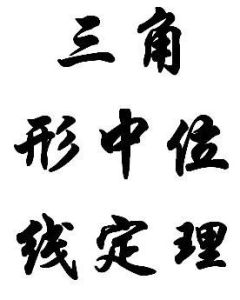 三角
形中位
线定理